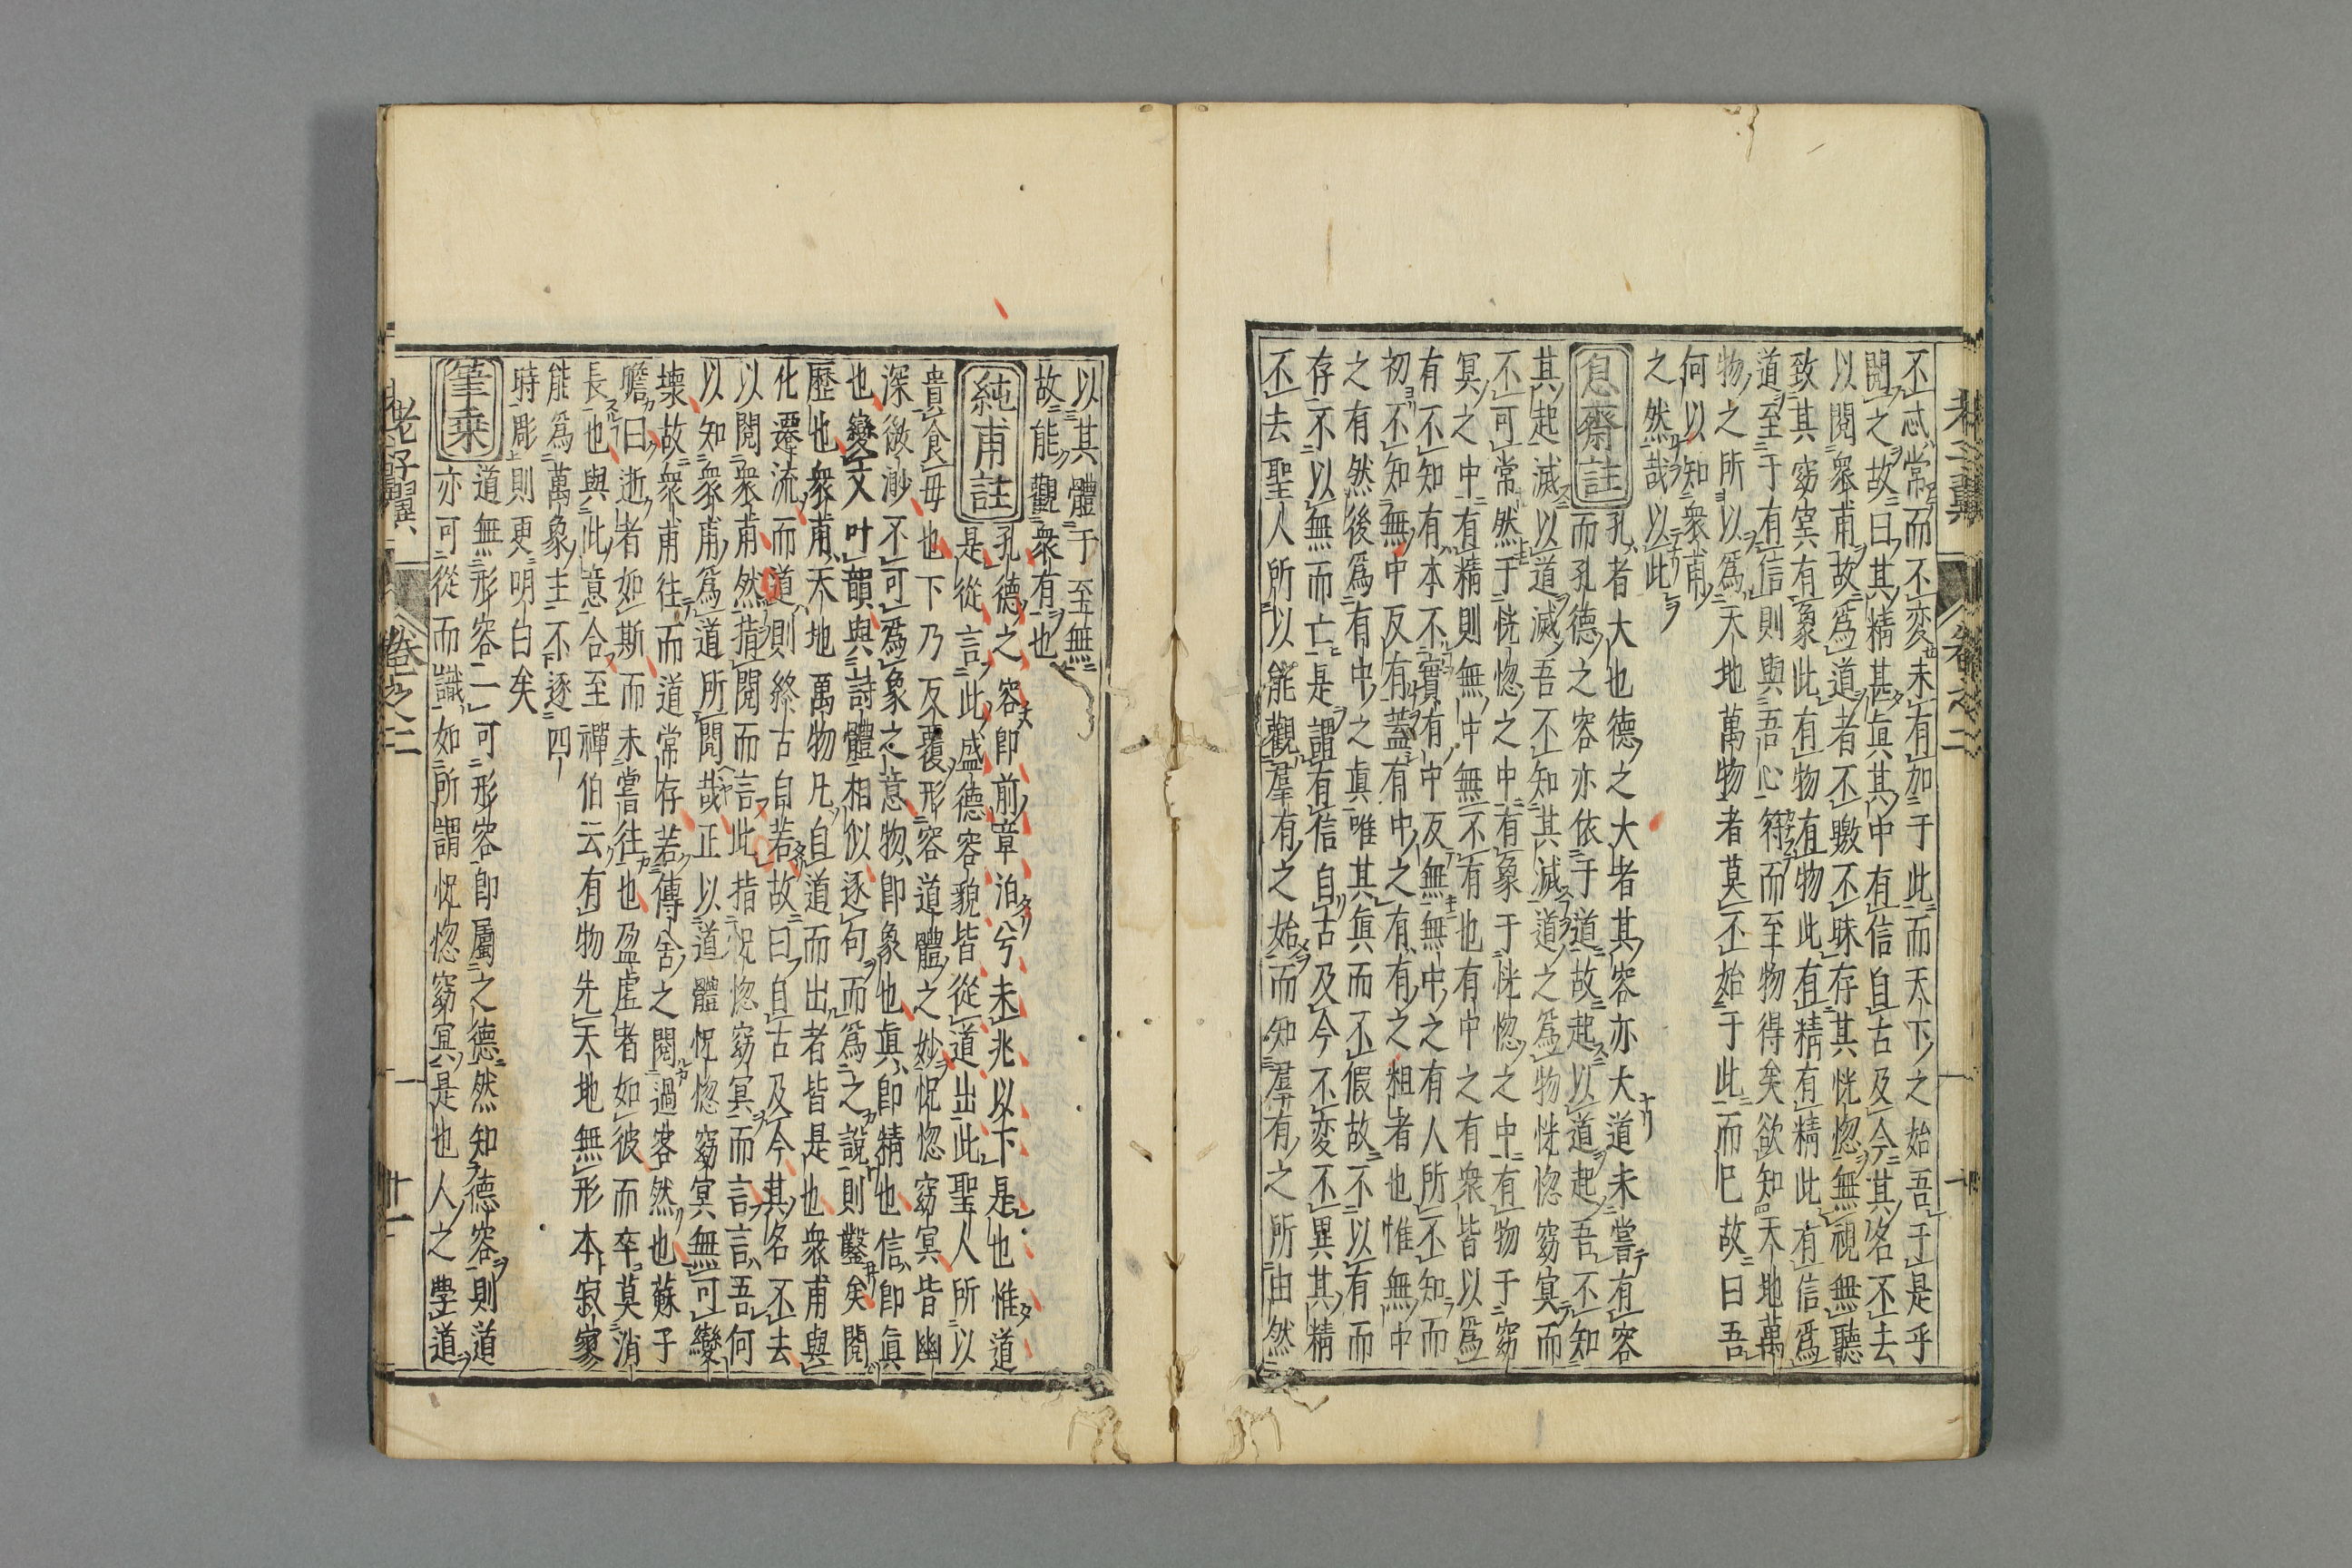 不忒常而不変未有加于此而天下之始吾于是乎
閲之故曰其精甚眞其中有信自古及今其名不去
以閲衆甫故爲道者不皦不昧存其恍惚無視無聽
致其窈冥有象此有物有物此有精有精此有信爲
道至于有信則與吾心符而至物得矣欲知天地萬
物之所以爲天地萬物者莫不始于此而已故曰吾
何以知衆甫
之然哉以此
息齋註
孔者大也德之大者其容亦大道未嘗有容
而孔德之容亦依于道故起以道起吾不知
其起滅以道滅吾不知其滅道之爲物恍惚窈冥而
不可常然于恍惚之中有象于恍惚之中有物于窈
冥之中有精則無中無不有也有中之有衆皆以爲
有不知有本不實有中反無無中之有人所不知而
初不知無中反有蓋有中之有有之粗者也惟無中
之有然後爲有中之眞唯其眞而不假故不以有而
存不以無而亡是謂有信自古及今不変不異其精
不去聖人所以能觀羣有之始而知羣有之所由然
以其體于至無
故能觀衆有也
純甫註
孔德之容即前章泊兮未兆以下是也惟道
是從言此盛德容貌皆從道出此聖人所以
貴食母也下乃反覆形容道體之妙怳惚窈冥皆幽
深微渺不可爲象之意物即象也眞即精也信即眞
也變文叶韻與詩體相似逐句而爲之說則鑿矣閲
歷也衆甫天地萬物凡自道而出者皆是也衆甫與
化遷流而道則終古自若故曰自古及今其名不去
以閲衆甫然指閲而言此指怳惚窈冥而言言吾何
以知衆甫爲道所閲哉正以道體怳惚窈冥無可變
壞故衆甫往而道常存若傳舍之閲過客然也蘇子
瞻曰逝者如斯而未嘗往也盈虛者如彼而卒莫消
長也與此意合至禪伯云有物先天地無形本寂寥
能爲萬象主不逐四
時彫則更明白矣
筆乘
道無形容二可形容即屬之德然知德容則道
亦可從而識如所謂怳惚窈冥是也人之學道
老子翼
卷之二
十一